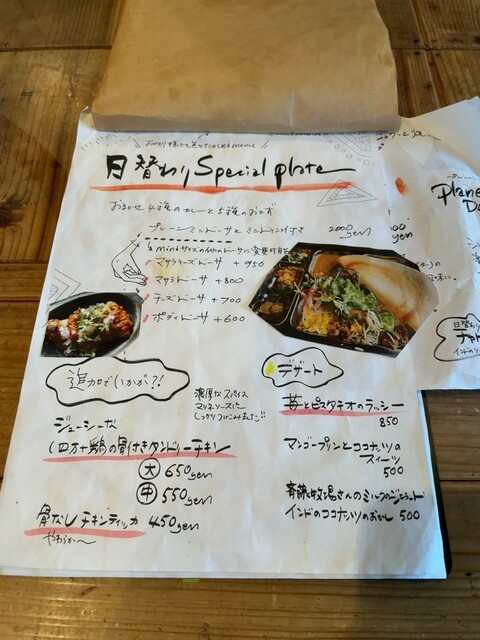 日替わり Special plate
おまかせ4種のカレーと5種のおかず
プレーンミニドーサとミニドリンク付き 2000 yen
miniサイズの他のドーサに変更可能
マサラチーズドーサ +950
マサラドーサ +800
チーズドーサ +700
ポディドーサ +600
追加でいかが?!
濃厚なスパイス
マリネソースに
しっかりつけこみました!!
ジューシーな
四万十鶏の骨付きタンドリーチキン
大 650 yen
中 550 yen
骨なしチキンティッカ 450 yen
やわらか〜
デザート
苺とピスタチオのラッシー
850
マンゴープリンとココナッツの
スイーツ
500
斉藤牧場さんのミルクのジェラート
インドのココナッツのおかし 500
Plane
Do
日替わり
チャト
インドの